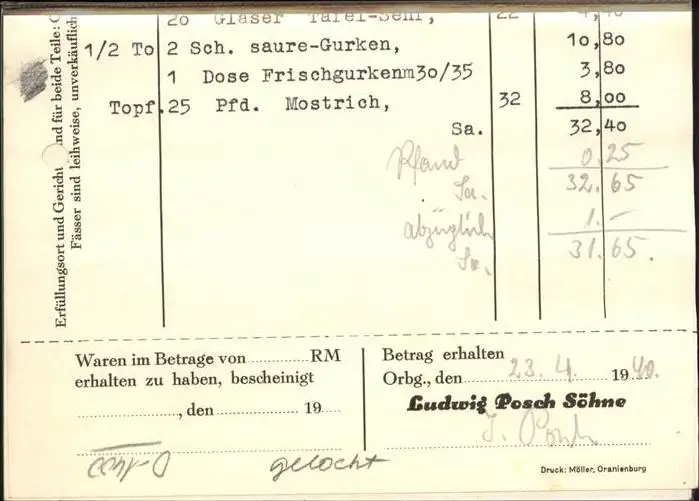 20 Gläser Tafel-Senf, 22 4,40
1/2 To 2 Sch. saure-Gurken, 10,80
1 Dose Frischgurkenm30/35 3,80
Topf.25 Pfd. Mostrich, 32 8,00
Sa. 32,40
Pfand 0.25
Sa. 32.65
abzüglich 1.—
Sa. 31.65.
Erfüllungsort und Gericht nd für beide Teile:
Fässer sind leihweise, unverkäuflich
Waren im Betrage von RM
erhalten zu haben, bescheinigt
, den 19
Betrag erhalten
Orbg., den 23. 4. 1940.
Ludwig Posch Söhne
gelocht
Druck: Möller, Oranienburg